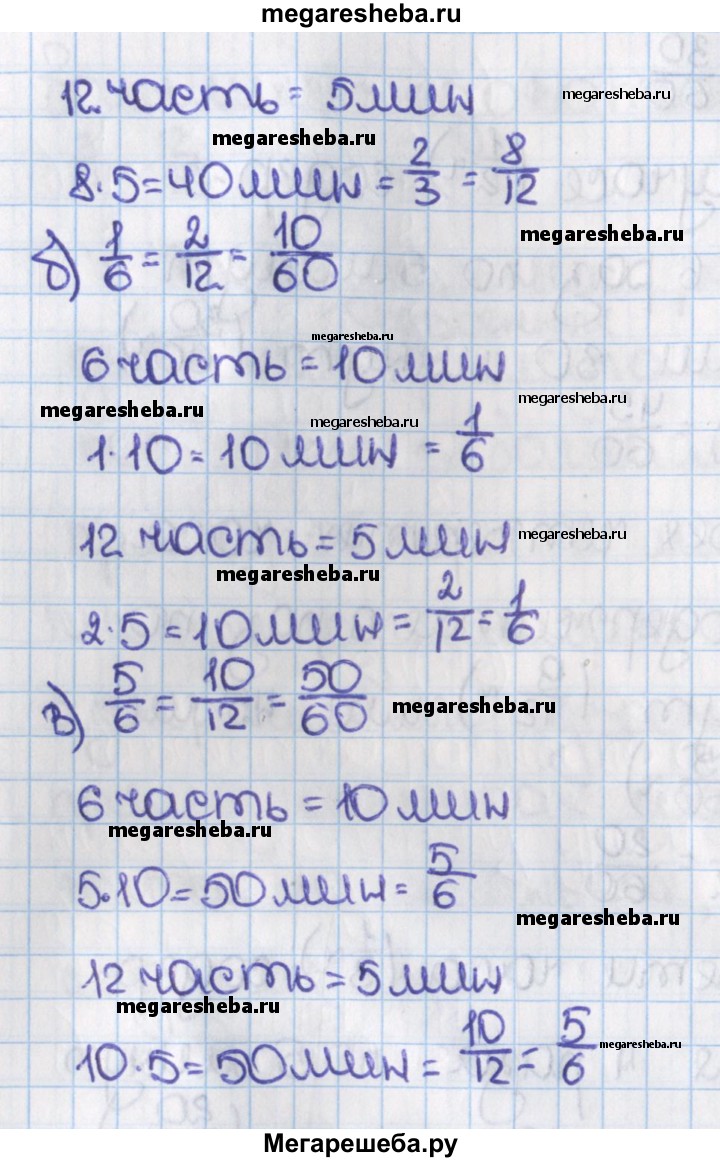 megaresheba.ru
12 часть = 5 мин
megaresheba.ru
megaresheba.ru
8·5=40 мин = 2/3 = 8/12
megaresheba.ru
б) 1/6 = 2/12 = 10/60
megaresheba.ru
6 часть = 10 мин
megaresheba.ru
megaresheba.ru
megaresheba.ru
1·10 = 10 мин = 1/6
12 часть = 5 мин
megaresheba.ru
megaresheba.ru
2·5 = 10 мин = 2/12 = 1/6
в) 5/6 = 10/12 = 50/60
megaresheba.ru
6 часть = 10 мин
megaresheba.ru
5·10 = 50 мин = 5/6
megaresheba.ru
12 часть = 5 мин
megaresheba.ru
10·5 = 50 мин = 10/12 = 5/6
megaresheba.ru
Мегарешеба.ру